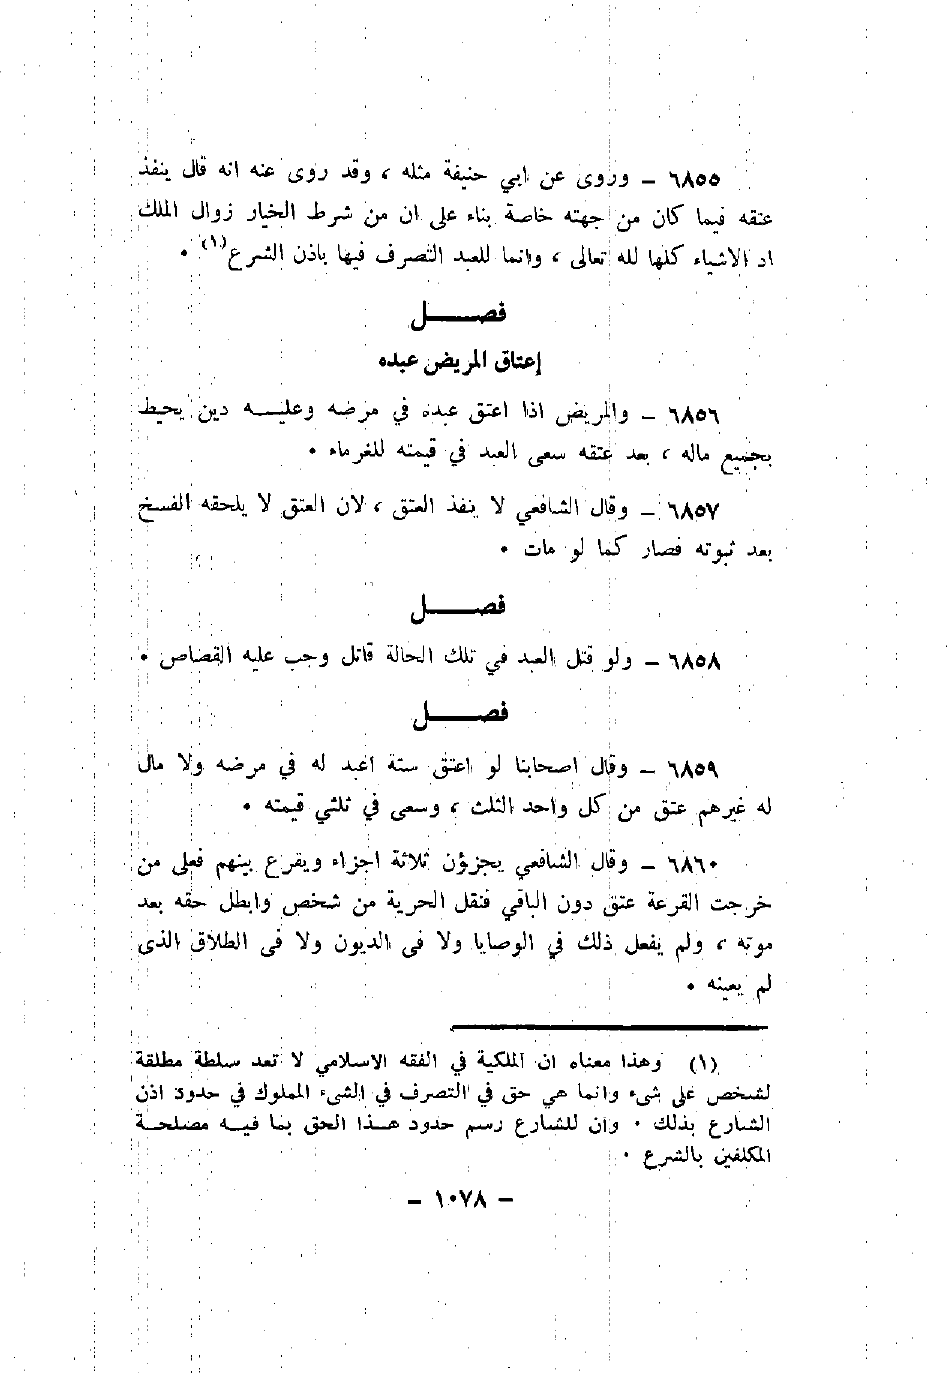 ٦٨٥٥ ــ وروى عن ابي حنيفة مثله ، وقد روى عنه انه قال ينفذ
عتقه فيما كان من جهته خاصة بناء على ان من شرط الخيار زوال الملك
اذ الاشياء كلها لله تعالى ، وانما للعبد التصرف فيها باذن الشرع(١) ٠
فصــــل
إعتاق المريض عبده
٦٨٥٦ ــ والمريض اذا اعتق عبده في مرضه وعليــه دين يحيط
بجميع ماله ، بعد عتقه سعى العبد في قيمته للغرماء ٠
٦٨٥٧ ــ وقال الشافعي لا ينفذ العتق ، لان العتق لا يلحقه الفسخ
بعد ثبوته فصار كما لو مات ٠
فصــــل
٦٨٥٨ ــ ولو قتل العبد في تلك الحالة قاتل وجب عليه القصاص ٠
فصــــل
٦٨٥٩ ــ وقال اصحابنا لو اعتق ستة اعبد له في مرضه ولا مال
له غيرهم عتق من كل واحد الثلث ، وسعى في ثلثي قيمته ٠
٦٨٦٠ ــ وقال الشافعي يجزؤن ثلاثة اجزاء ويقرع بينهم فعلى من
خرجت القرعة عتق دون الباقي فنقل الحرية من شخص وابطل حقه بعد
موته ، ولم يفعل ذلك في الوصايا ولا فى الديون ولا فى الطلاق الذى
لم يعينه ٠
(١) وهذا معناه ان الملكية في الفقه الاسلامي لا تعد سلطة مطلقة
لشخص على شىء وانما هي حق في التصرف في الشىء المملوك في حدود اذن
الشارع بذلك ٠ وان للشارع رسم حدود هــذا الحق بما فيــه مصلحــة
المكلفين بالشرع ٠
ــ ١٠٧٨ ــ